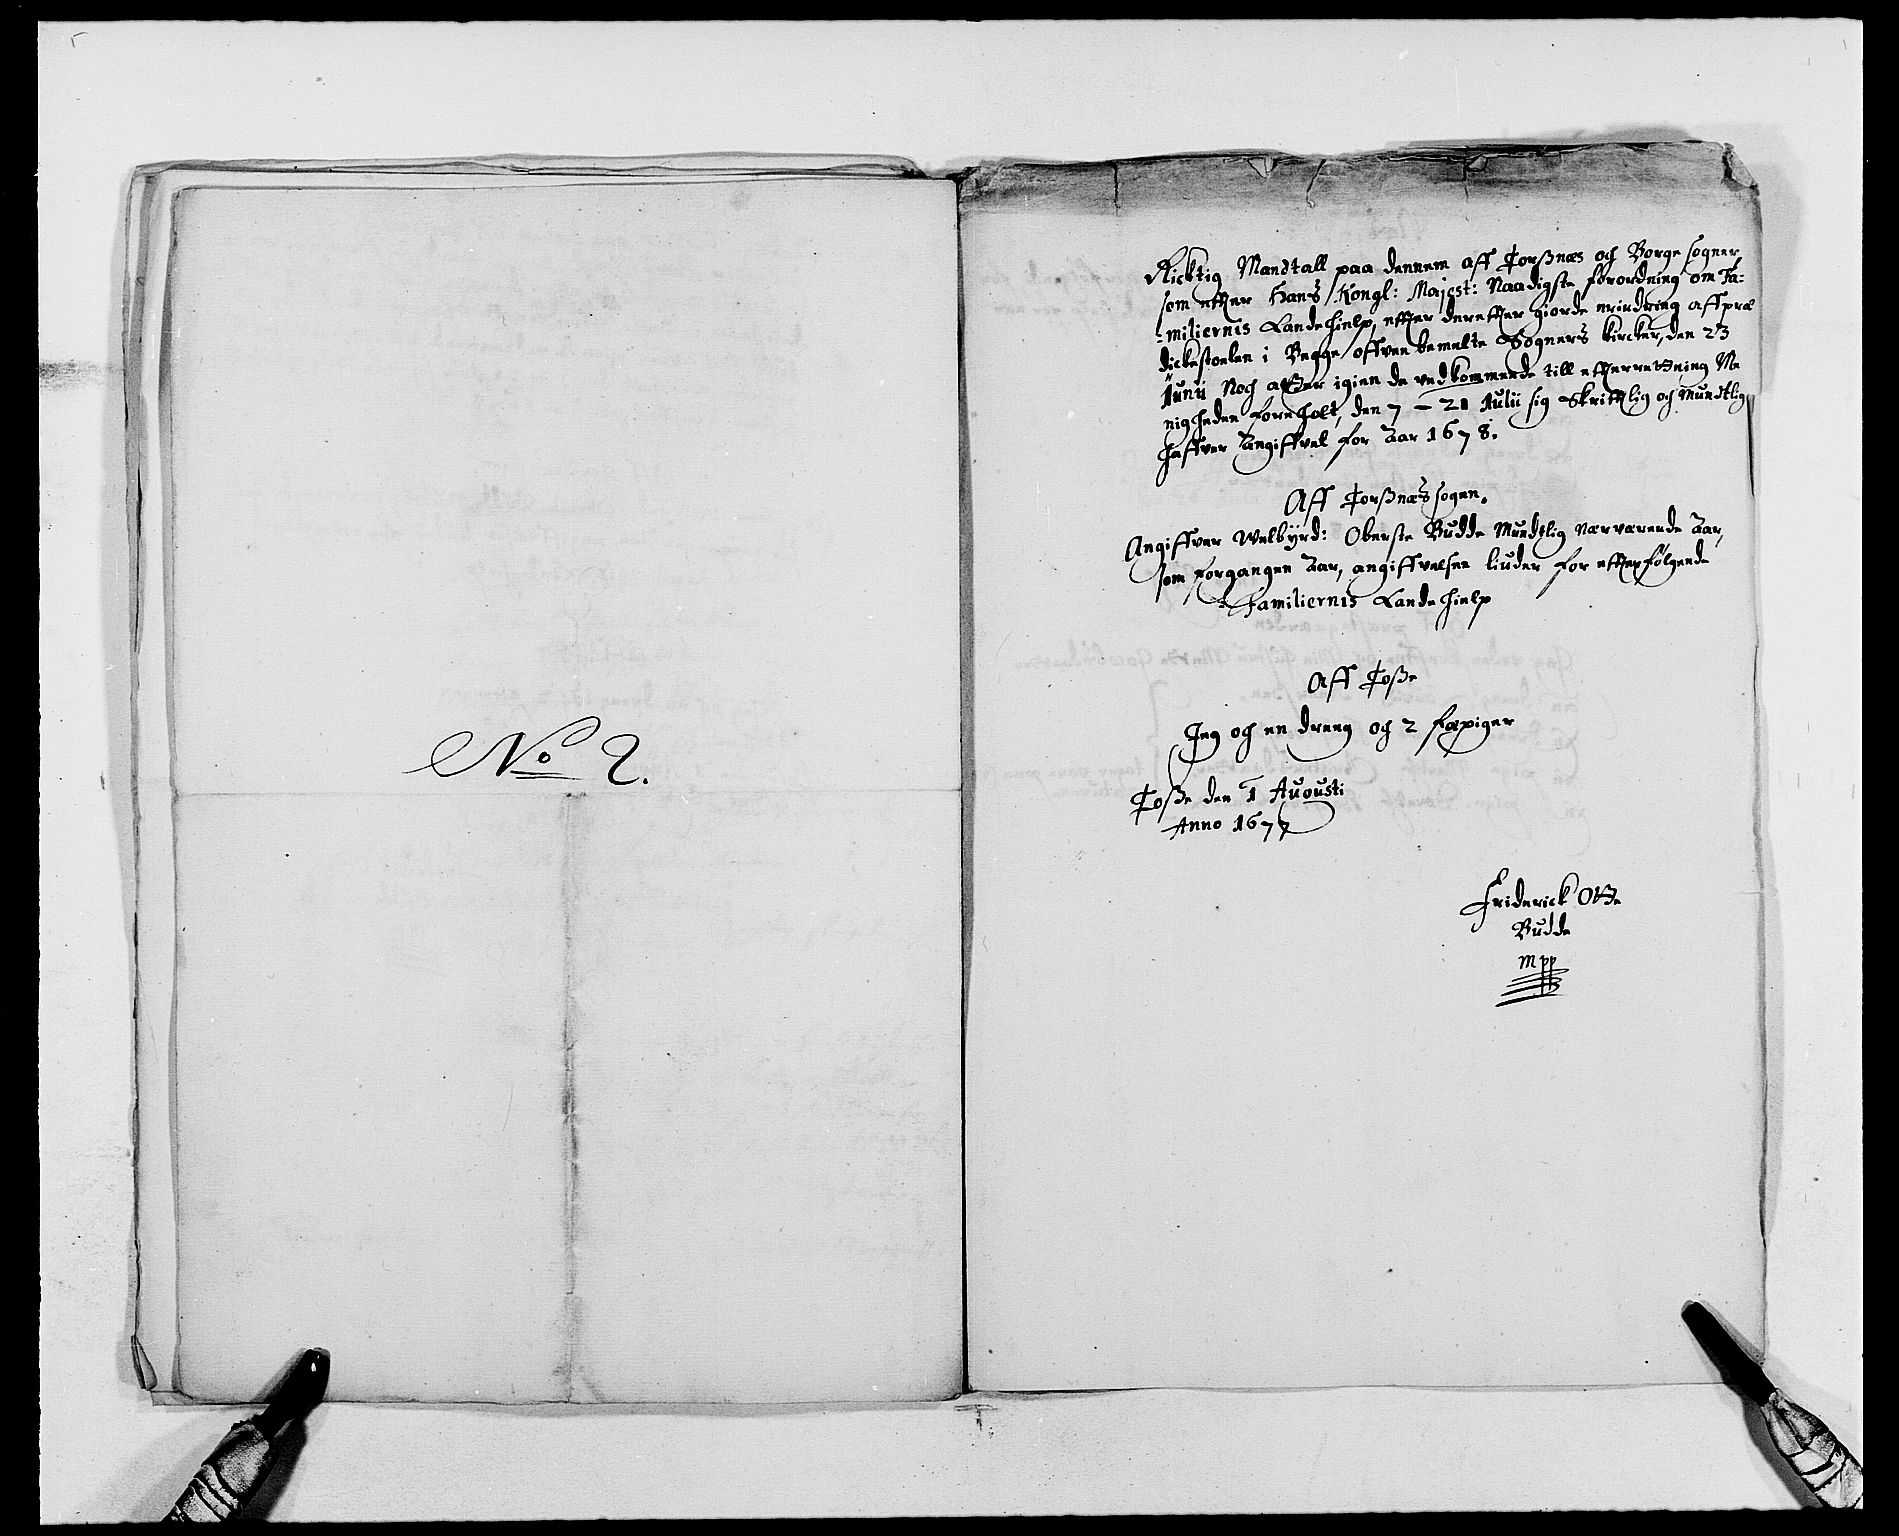 No 2.
Ricktig Mandtall paa dennem aff Torßnæs och Borge sogner,
som effter Hans Kongl: Majest: Naadigste forordning om Fa=
=miliernis Landehielp, effter dereffter giorde erindring aff præ
dickestoelen i Begge offven bemelte Sogners kircker, den 23
Junii Noch atter igien de vedkommende till effterretning Me
nigheden foreholt, den 7 - 21 Julii sig Skrifftlig och Mundtlig
haffver Angiffvet for Aar 1678.
Aff Torßnæs sogen.
Angiffver Welbÿrd: Oberste Budde Mundtlig nærværende Aar,
som forgangen Aar, angiffvelsen liuder for effterfølgende
Familiernis Landehielp
Aff Toße
Jeg och en dreng och 2 fæpiger
Toße den 1 Augusti
Anno 1677
Friderick Otte
Budde
Mpp